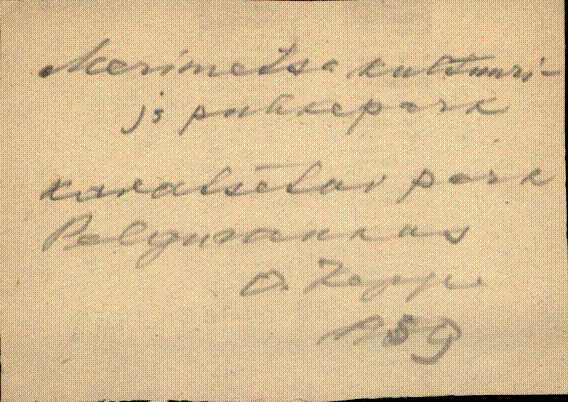 Merimetsa kultuuri-
ja puhkepark
kavatsetav park
Pelgurannas
O. Kapp
1959